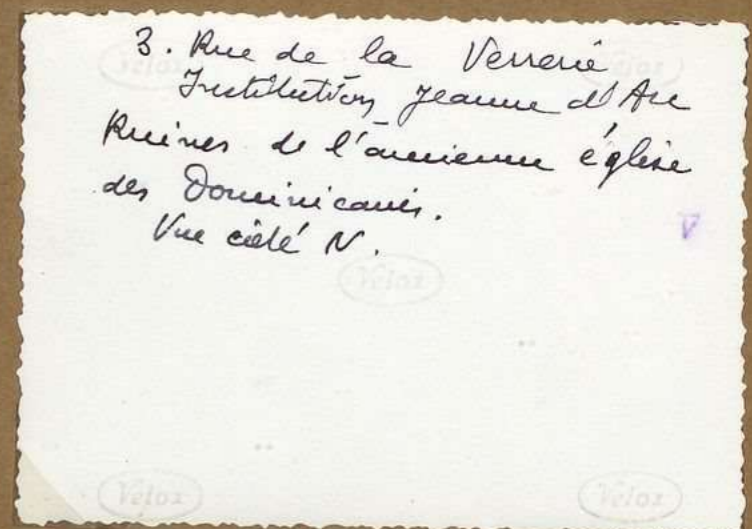 3. Rue de la Verrerie
Institution Jeanne d'Arc
Ruines de l'ancienne église
des Dominicains.
Vue côté N.
V
Velox
Velox
Velox
Velox
Velox